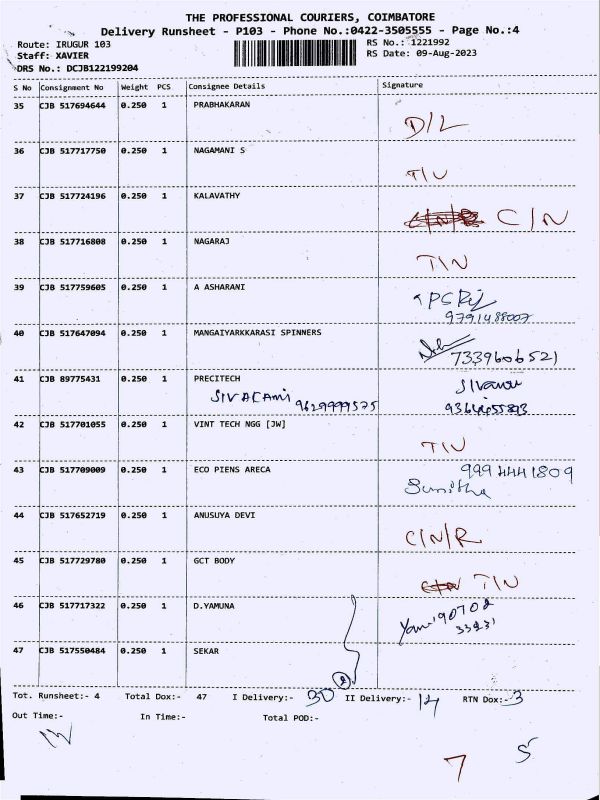 THE PROFESSIONAL COURIERS, COIMBATORE
Delivery Runsheet - P103 - Phone No.:0422-3505555 - Page No.:4
Route: IRUGUR 103 RS No.: 1221992
Staff: XAVIER RS Date: 09-Aug-2023
DRS No.: DCJB122199204
S No Consignment No Weight PCS Consignee Details Signature
35 CJB 517694644 0.250 1 PRABHAKARAN
D/L
36 CJB 517717750 0.250 1 NAGAMANI S
T/U
37 CJB 517724196 0.250 1 KALAVATHY
C/N
38 CJB 517716808 0.250 1 NAGARAJ
T/N
39 CJB 517759605 0.250 1 A ASHARANI
9791488007
40 CJB 517647094 0.250 1 MANGAIYARKKARASI SPINNERS
7339606521
41 CJB 89775431 0.250 1 PRECITECH
SIVACAMI 9629999575
42 CJB 517701055 0.250 1 VINT TECH NGG [JW]
T/U
43 CJB 517709009 0.250 1 ECO PIENS ARECA 9994441809
Sunitha
44 CJB 517652719 0.250 1 ANUSUYA DEVI
C/N/R
45 CJB 517729780 0.250 1 GCT BODY
T/N
46 CJB 517717322 0.250 1 D.YAMUNA
47 CJB 517550484 0.250 1 SEKAR
2
Tot. Runsheet:- 4 Total Dox:- 47 I Delivery:- 30 II Delivery:- 14 RTN Dox:- 3
Out Time:- In Time:- Total POD:-
7 5